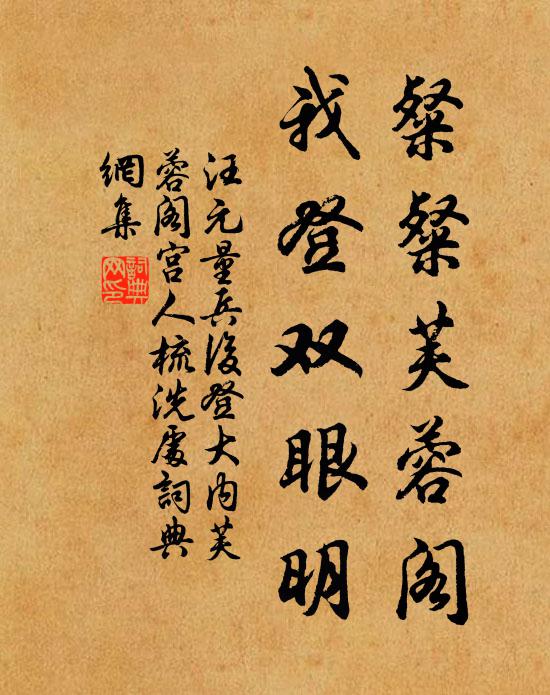 粲粲芙蓉阁
我登双眼明
汪元量兵後登大内芙
蓉阁宫人梳洗處詞典
網集
詞典
网印